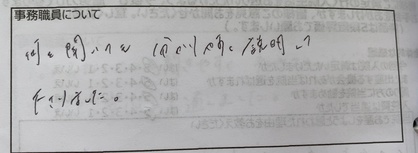 事務職員について
何を聞いても 分かり易く説明して
下さいました。